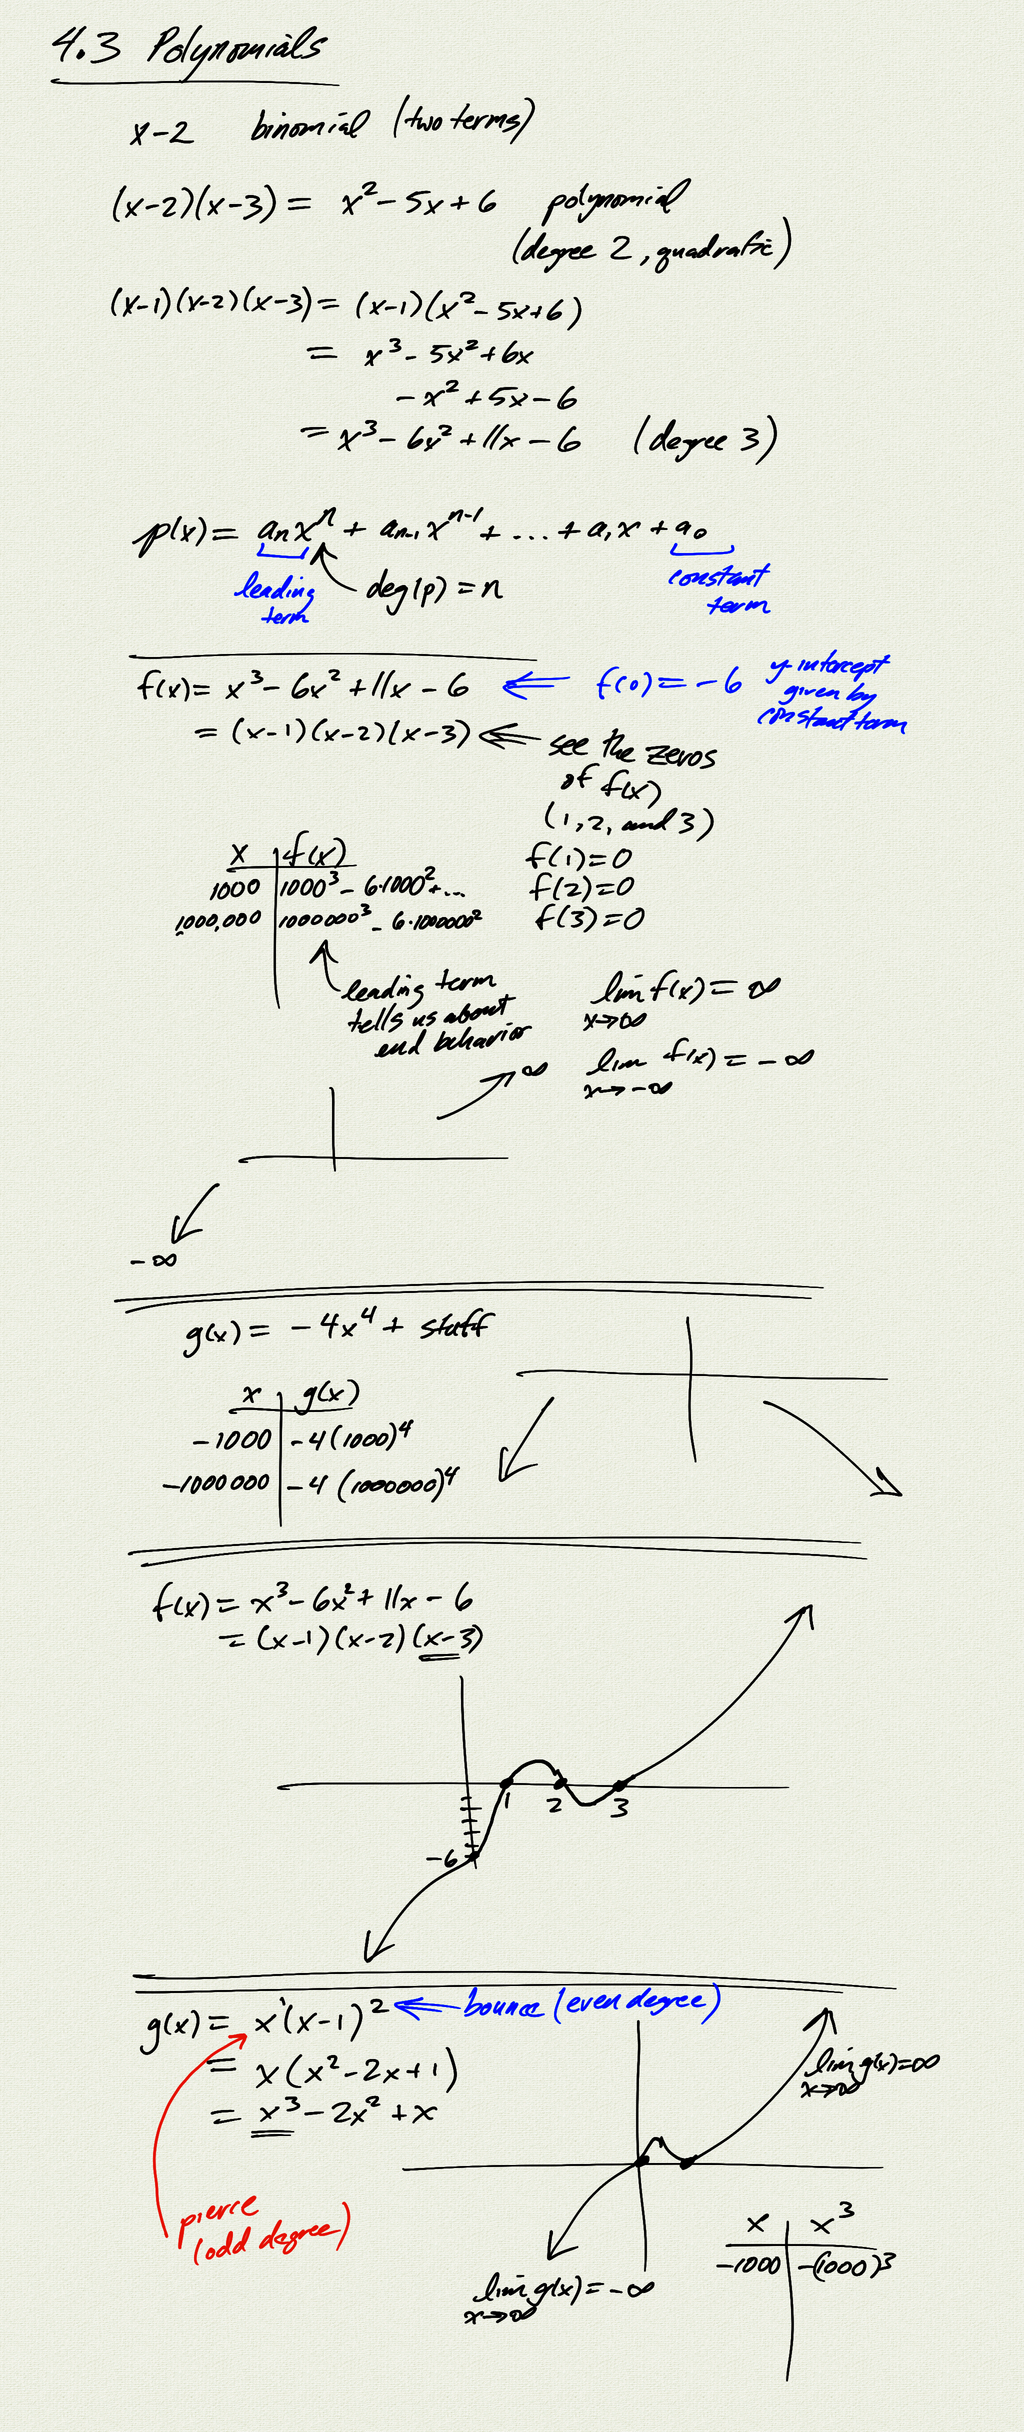 4.3 Polynomials
x-2 binomial (two terms)
(x-2)(x-3) = x² - 5x + 6 polynomial
(degree 2, quadratic)
(x-1)(x-2)(x-3) = (x-1)(x² - 5x + 6)
= x³ - 5x² + 6x
- x² + 5x - 6
= x³ - 6x² + 11x - 6 (degree 3)
p(x) = aₙxⁿ + aₙ₋₁xⁿ⁻¹ + ... + a₁x + a₀
leading term
deg(p) = n
constant term
f(x) = x³ - 6x² + 11x - 6 ⇐ f(0) = -6
y-intercept
given by
constant term
= (x-1)(x-2)(x-3) ⇐ see the zeros
of f(x)
(1, 2, and 3)
f(1) = 0
f(2) = 0
f(3) = 0
x f(x)
1000 1000³ - 6·1000² + ...
1,000,000 1000000³ - 6·1000000²
leading term
tells us about
end behavior
lim f(x) = ∞
x→∞
lim f(x) = -∞
x→-∞
∞
-∞
g(x) = -4x⁴ + stuff
x g(x)
-1000 -4(1000)⁴
-1000000 -4(1000000)⁴
f(x) = x³ - 6x² + 11x - 6
= (x-1)(x-2)(x-3)
1 2 3
-6
g(x) = x¹(x-1)² ⇐ bounce (even degree)
= x(x² - 2x + 1)
= x³ - 2x² + x
pierce
(odd degree)
lim g(x) = ∞
x→∞
lim g(x) = -∞
x→∞
x x³
-1000 -(1000)³